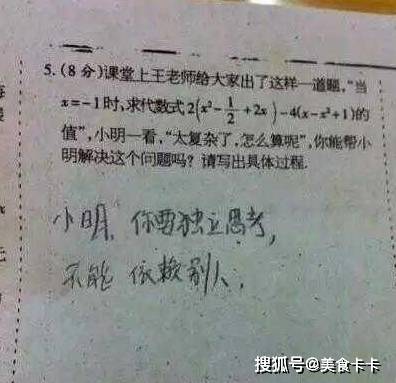 5.(8分)课堂上王老师给大家出了这样一道题,“当
x=-1时,求代数式2(x²-1/2+2x)-4(x-x²+1)的
值”,小明一看,“太复杂了,怎么算呢”,你能帮小
明解决这个问题吗?请写出具体过程.
小明,你要独立思考,
不能依赖别人.
搜狐号@美食卡卡